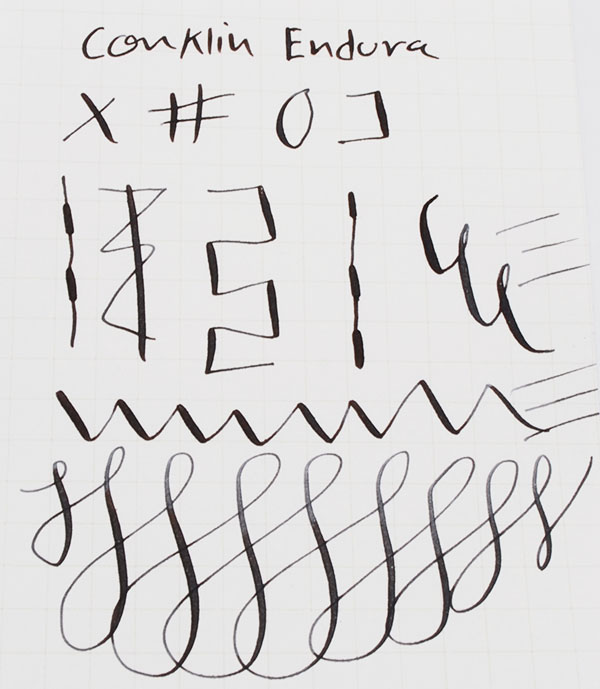 Conklin Endura
X # O ]